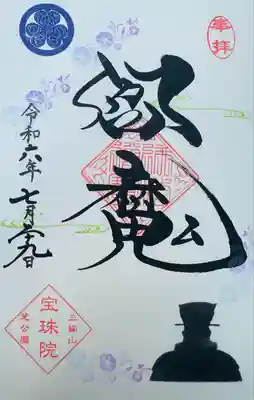 奉拝
閻魔
令和六年七月二九日
三縁山
宝珠院
芝公園